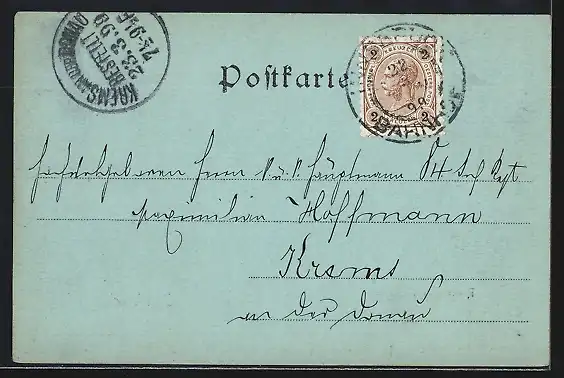 KREMS AN DER DONAU
BESTELLT
23.3.99
7½-9½V
Postkarte
2 KREUZER 2
2 2
22
99
BAHNHOF
Hochwohlgeboren Herrn k. u. k. Hauptmann 84 Inf Regt
Maximilian Hoffmann
Krems
an der Donau